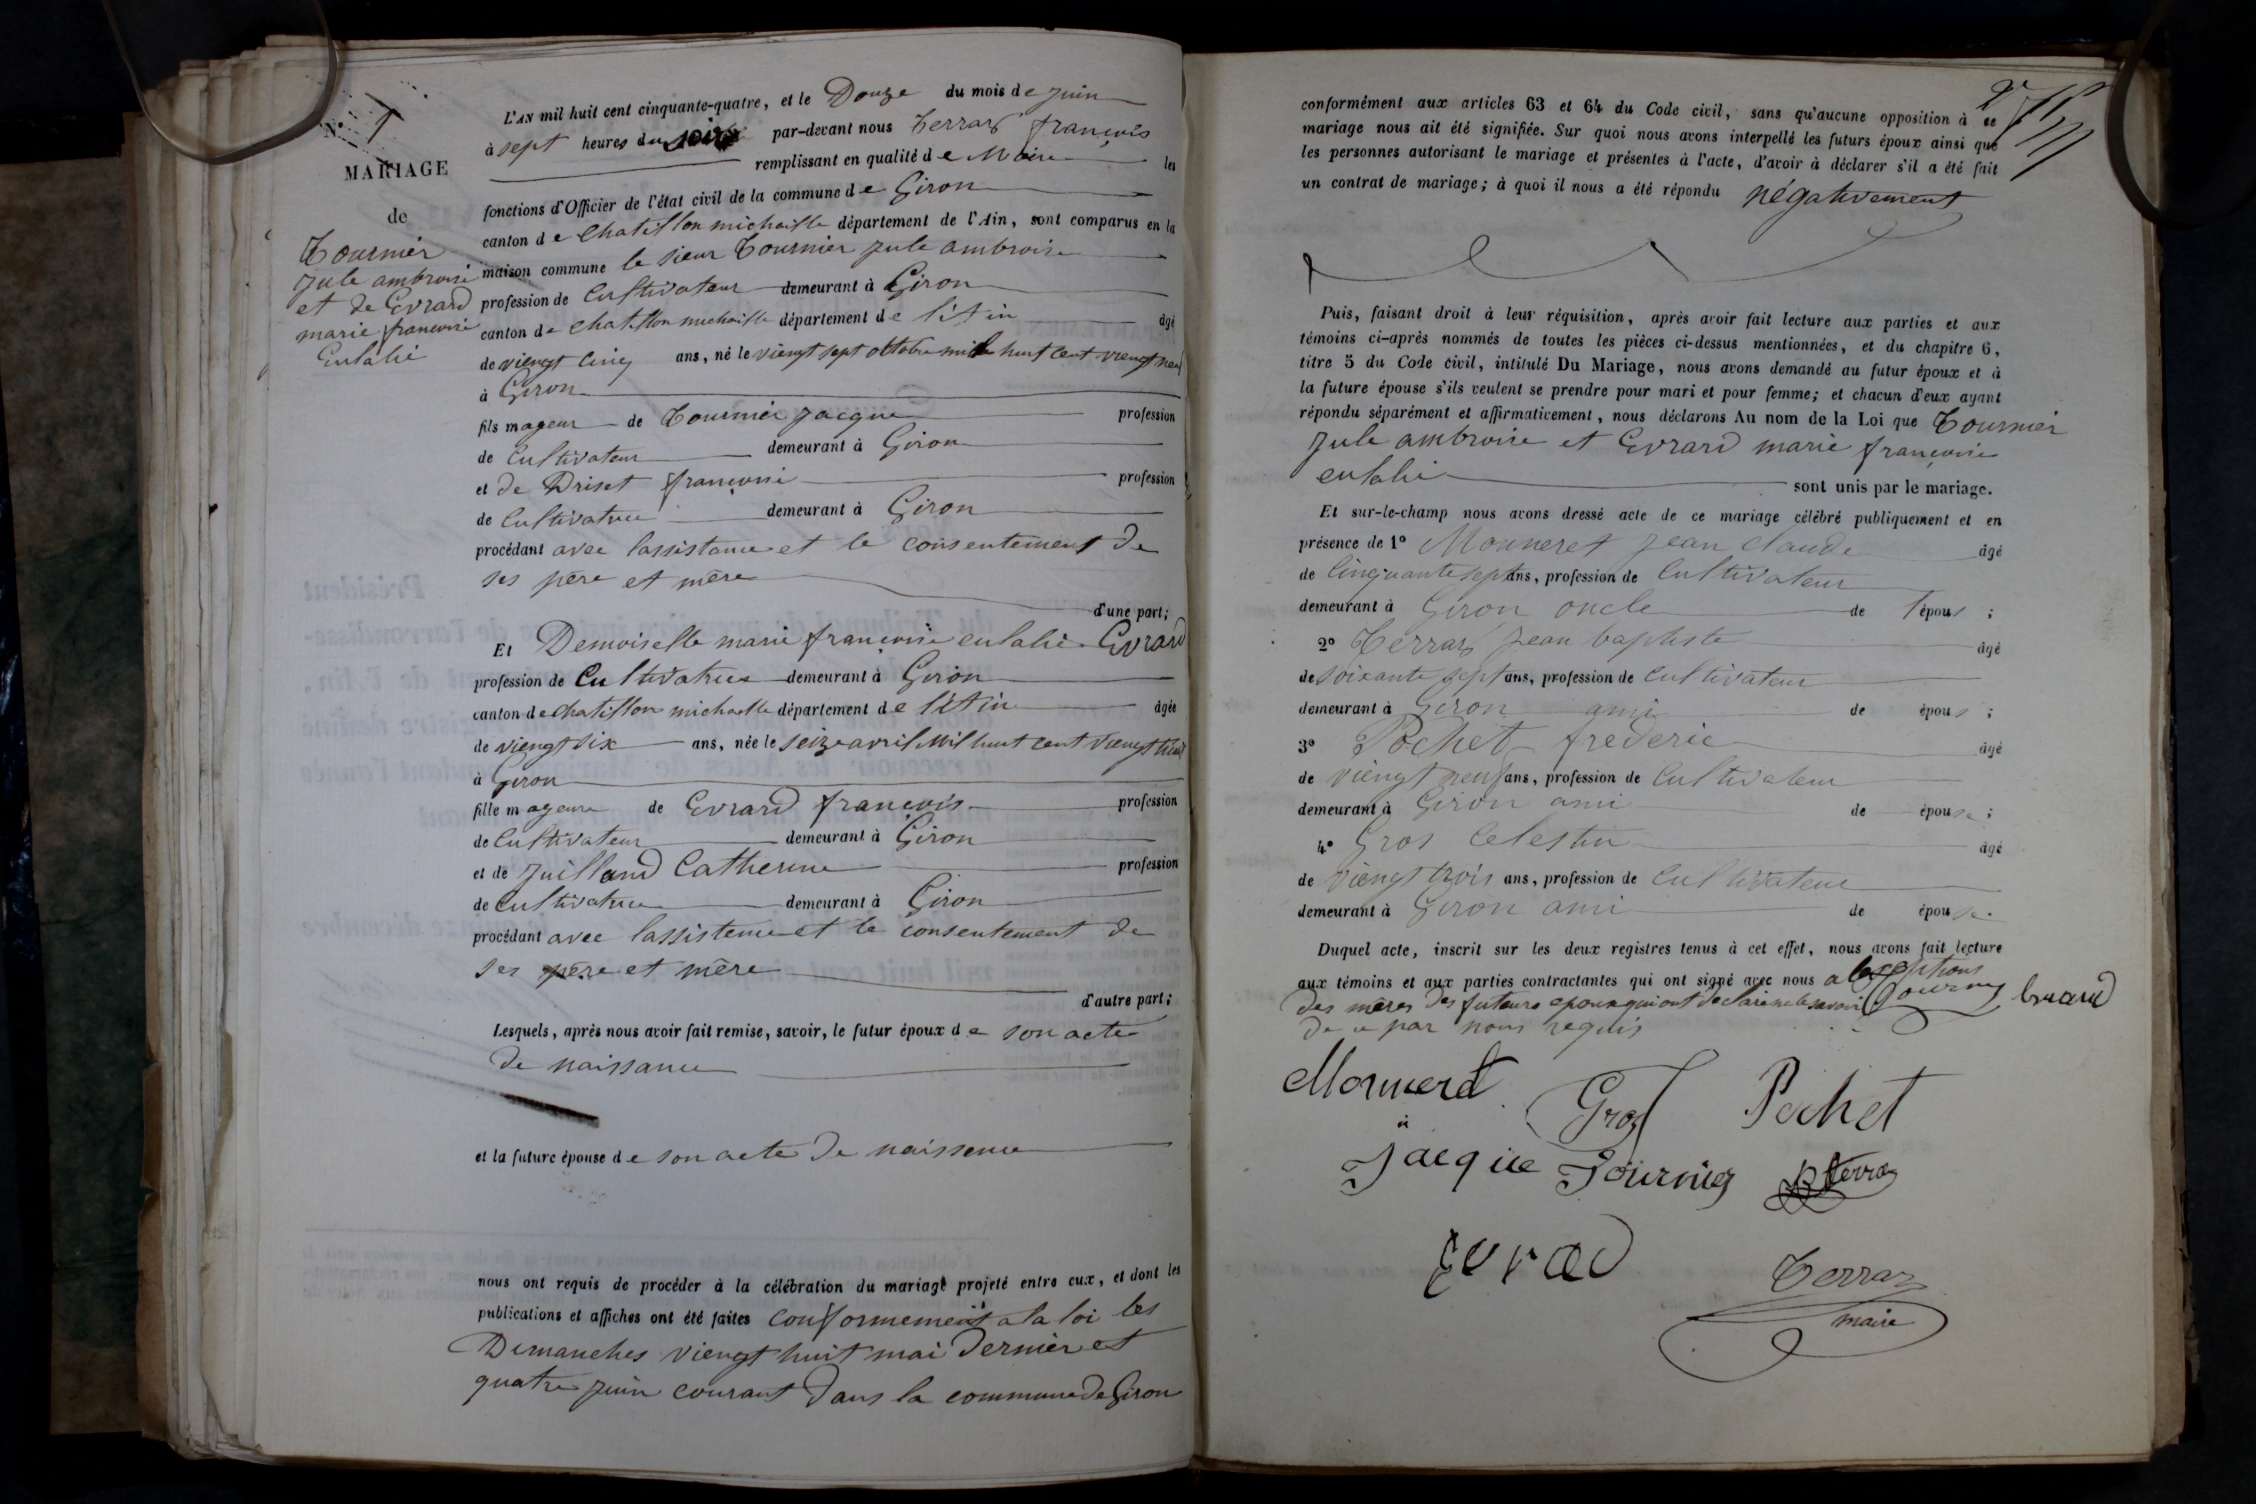 N.° 1
MARIAGE
de
Tournier
Jule ambroise
et de Evrard
marie francoise
Eulalie
L'AN mil huit cent cinquante-quatre, et le Douze du mois de Juin
à sept heures du soir par-devant nous Terraz françois
remplissant en qualité de Maire les
fonctions d'Officier de l'état civil de la commune de Giron
canton de Chatillon michaille département de l'Ain, sont comparus en la
maison commune le sieur Tournier Jule ambroise
profession de Cultivateur demeurant à Giron
canton de Chatillon michaille département de l'Ain âgé
de viengt cinq ans, né le viengt sept octobre mil huit cent viengt neuf
à Giron
fils mageur de Tournier Jacque profession
de Cultivateur demeurant à Giron
et de Driset françoise profession
de Cultivatrice demeurant à Giron
procédant avec lassistance et le consentement de
ses père et mère
d'une part;
Et Demoiselle marie françoise eulalie Evrard
profession de Cultivatrice demeurant à Giron
canton de chatillon michaille département de l'Ain âgée
de viengt six ans, née le seize avril Mil huit cent viengt huit
à Giron
fille mageure de Evrard françois profession
de Cultivateur demeurant à Giron
et de Juilland Catherine profession
de Cultivatrice demeurant à Giron
procédant avec lassistence et le consentement de
ses père et mère
d'autre part;
Lesquels, après nous avoir fait remise, savoir, le futur époux de son acte
de naissance
et la future épouse de son acte de naissence
nous ont requis de procéder à la célébration du mariage projeté entre eux, et dont les
publications et affiches ont été faites conformement a la loi les
Dimanches viengt huit mai dernier et
quatre juin courant dans la commune de Giron
conformément aux articles 63 et 64 du Code civil, sans qu'aucune opposition à ce
mariage nous ait été signifiée. Sur quoi nous avons interpellé les futurs époux ainsi que
les personnes autorisant le mariage et présentes à l'acte, d'avoir à déclarer s'il a été fait
un contrat de mariage; à quoi il nous a été répondu négativement
Puis, faisant droit à leur réquisition, après avoir fait lecture aux parties et aux
témoins ci-après nommés de toutes les pièces ci-dessus mentionnées, et du chapitre 6,
titre 5 du Code civil, intitulé Du Mariage, nous avons demandé au futur époux et à
la future épouse s'ils veulent se prendre pour mari et pour femme; et chacun d'eux ayant
répondu séparément et affirmativement, nous déclarons Au nom de la Loi que Tournier
Jule ambroise et Evrard marie françoise
eulalie sont unis par le mariage.
Et sur-le-champ nous avons dressé acte de ce mariage célébré publiquement et en
présence de 1° Monneret Jean claude âgé
de Cinquante sept ans, profession de Cultivateur
demeurant à Giron oncle de l'époux ;
2° Terraz Jean baptiste âgé
de soixante sept ans, profession de Cultivateur
demeurant à Giron ami de époux ;
3° Pochet frederic âgé
de viengt neuf ans, profession de Cultivateur
demeurant à Giron ami de épouse ;
4° Gros Celestin âgé
de viengt trois ans, profession de Cultivateur
demeurant à Giron ami de épouse.
Duquel acte, inscrit sur les deux registres tenus à cet effet, nous avons fait lecture
aux témoins et aux parties contractantes qui ont signé avec nous a
des mères des futeurs epoux qui ont declaré ne le savoir Tournier Evrard
de ce par nous requis
Monneret Gros Pochet
Jacque Tournier JB terraz
Evrard
Terraz
maire